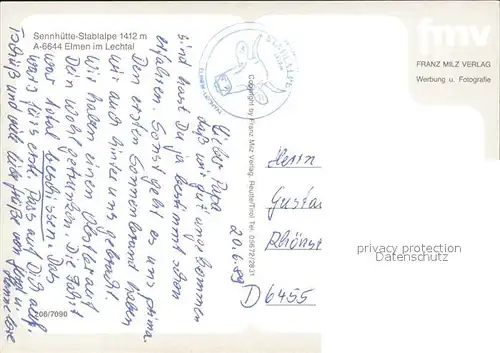 Sennhütte-Stablalpe 1412 m
A-6644 Elmen im Lechtal
fmv
FRANZ MILZ VERLAG
Werbung u. Fotografie
STABLALPE
Copyright by Franz Milz Verlag, Reutte/Tirol Tel. 05672/2831
20.6.89
Lieber Papa
daß wir gut angekommen
sind hast Du ja bestimmt schon
erfahren. Sonst geht es uns prima.
Den ersten Sonnenbrand haben
wir auch hinter uns gebracht.
Wir haben einen Obstler auf
Dein Wohl getrunken. Die Fahrt
war total beschissen. Das
wars fürs erste. Pass auf Dich auf.
Tschüß und viele liebe Grüße von
Herrn
Gustav
Rhönst
D 6455
206/7090
privacy protection
DELCAMPE